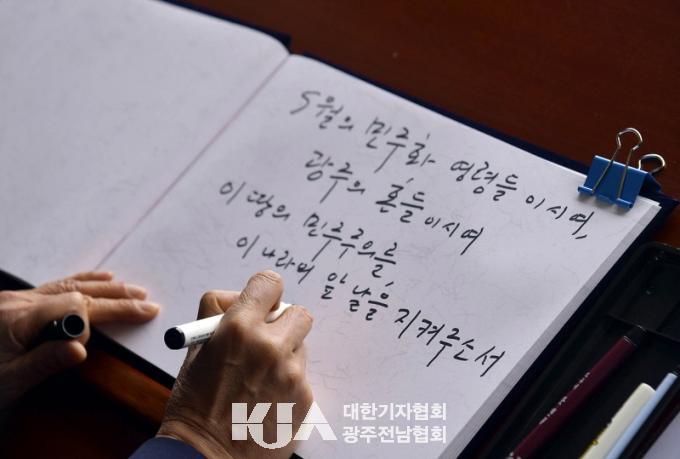 5월의 민주화 영령들이시여,
광주의 혼들이시여
이 땅의 민주주의를,
이 나라의 앞날을 지켜주소서
KJA 대한기자협회
광주전남협회